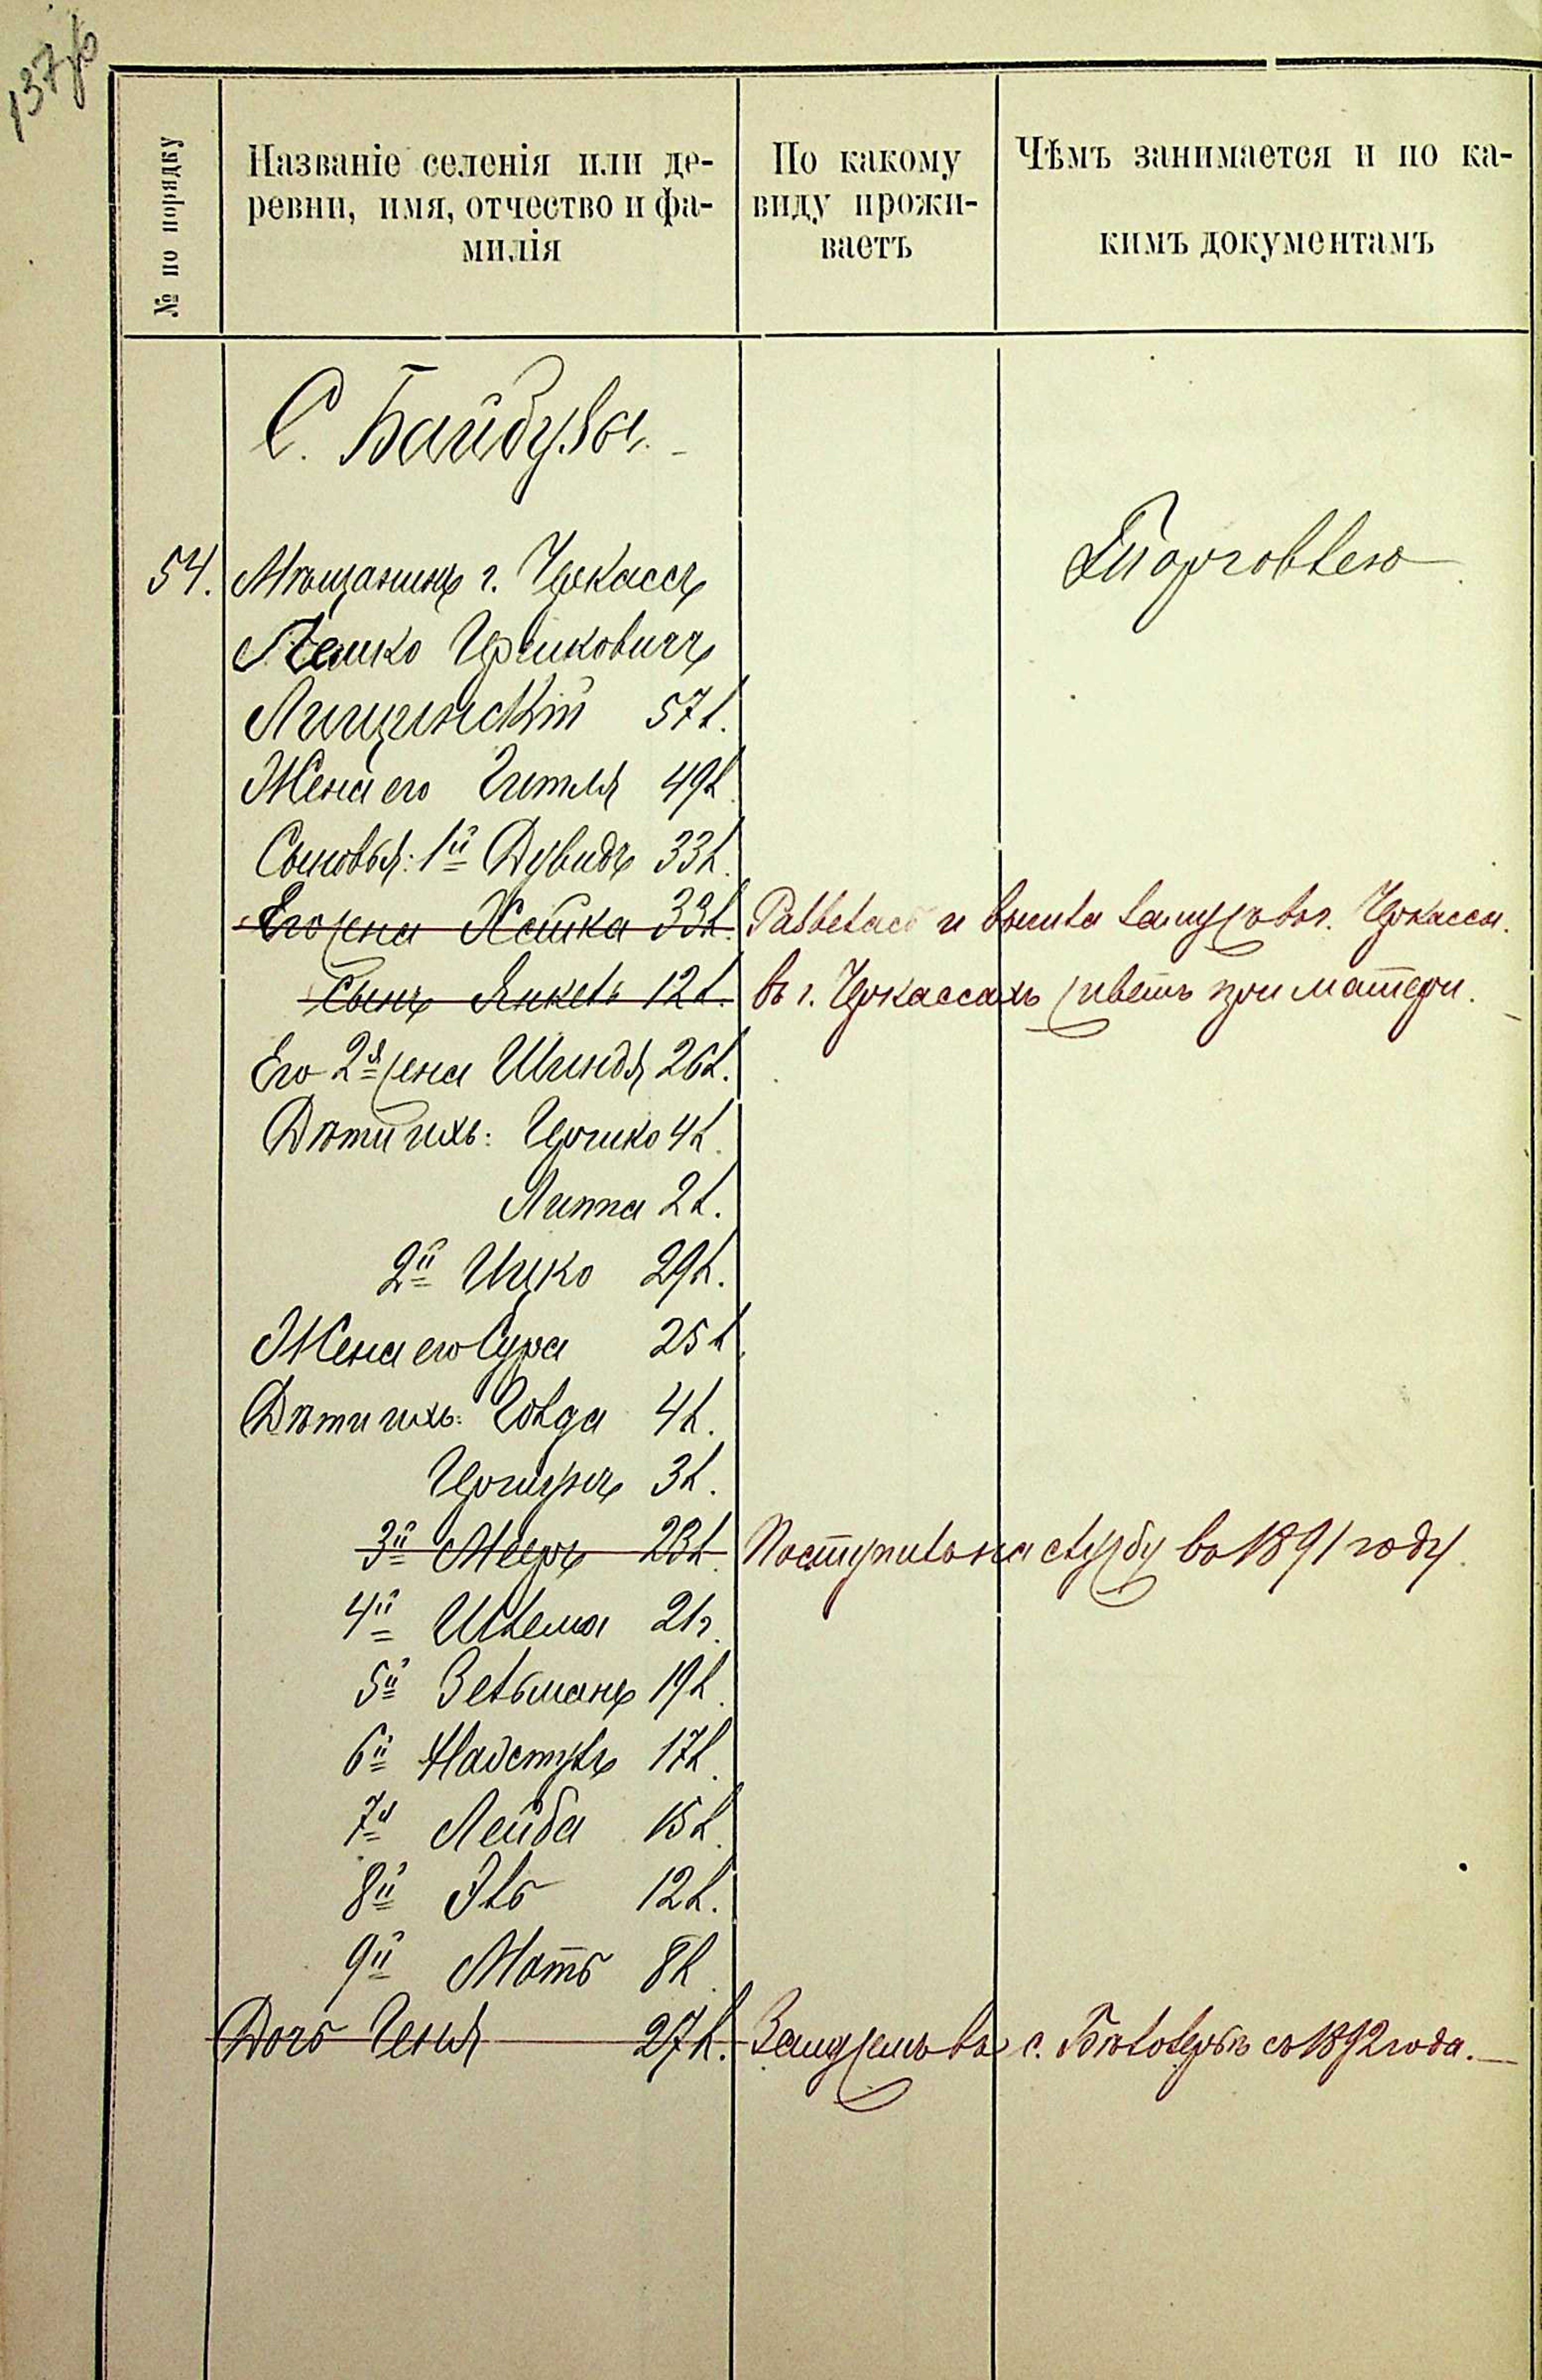 137 об
№ по порядку
Названіе селенія или де-
ревни, имя, отчество и фа-
милія
По какому
виду прожи-
ваетъ
Чѣмъ занимается и по ка-
кимъ документамъ
С. Байбузы.
54. Мѣщанинъ г. Черкассъ
Торговлею
Лейзерко Гершковичъ
Лищинскій 57 л.
Жена его Гитля 49 л.
Сыновья: 1й Дувидъ 33 л.
Его жена Хайка 33 л. Развелась и вышла замужъ въ г. Черкассы.
Сынъ Янкель 12 л. въ г. Черкассахъ живетъ при матери.
Его 2я жена Шиндля 26 л.
Дѣти ихъ: Гершко 4 л.
Липа 2 л.
2й Ицко 29 л.
Жена его Сура 25 л.
Дѣти ихъ: Голда 4 л.
Гершунъ 3 л.
3й Мееръ 23 л. Поступилъ на службу въ 1891 году.
4й Шлема 21 г.
5й Зельманъ 19 л.
6й Нафтулъ 17 л.
7й Лейба 15 л.
8й Эль 12 л.
9й Моть 8 л.
Дочь Геня 27 л. Замужемъ въ с. Бѣлозерьѣ съ 1892 года.